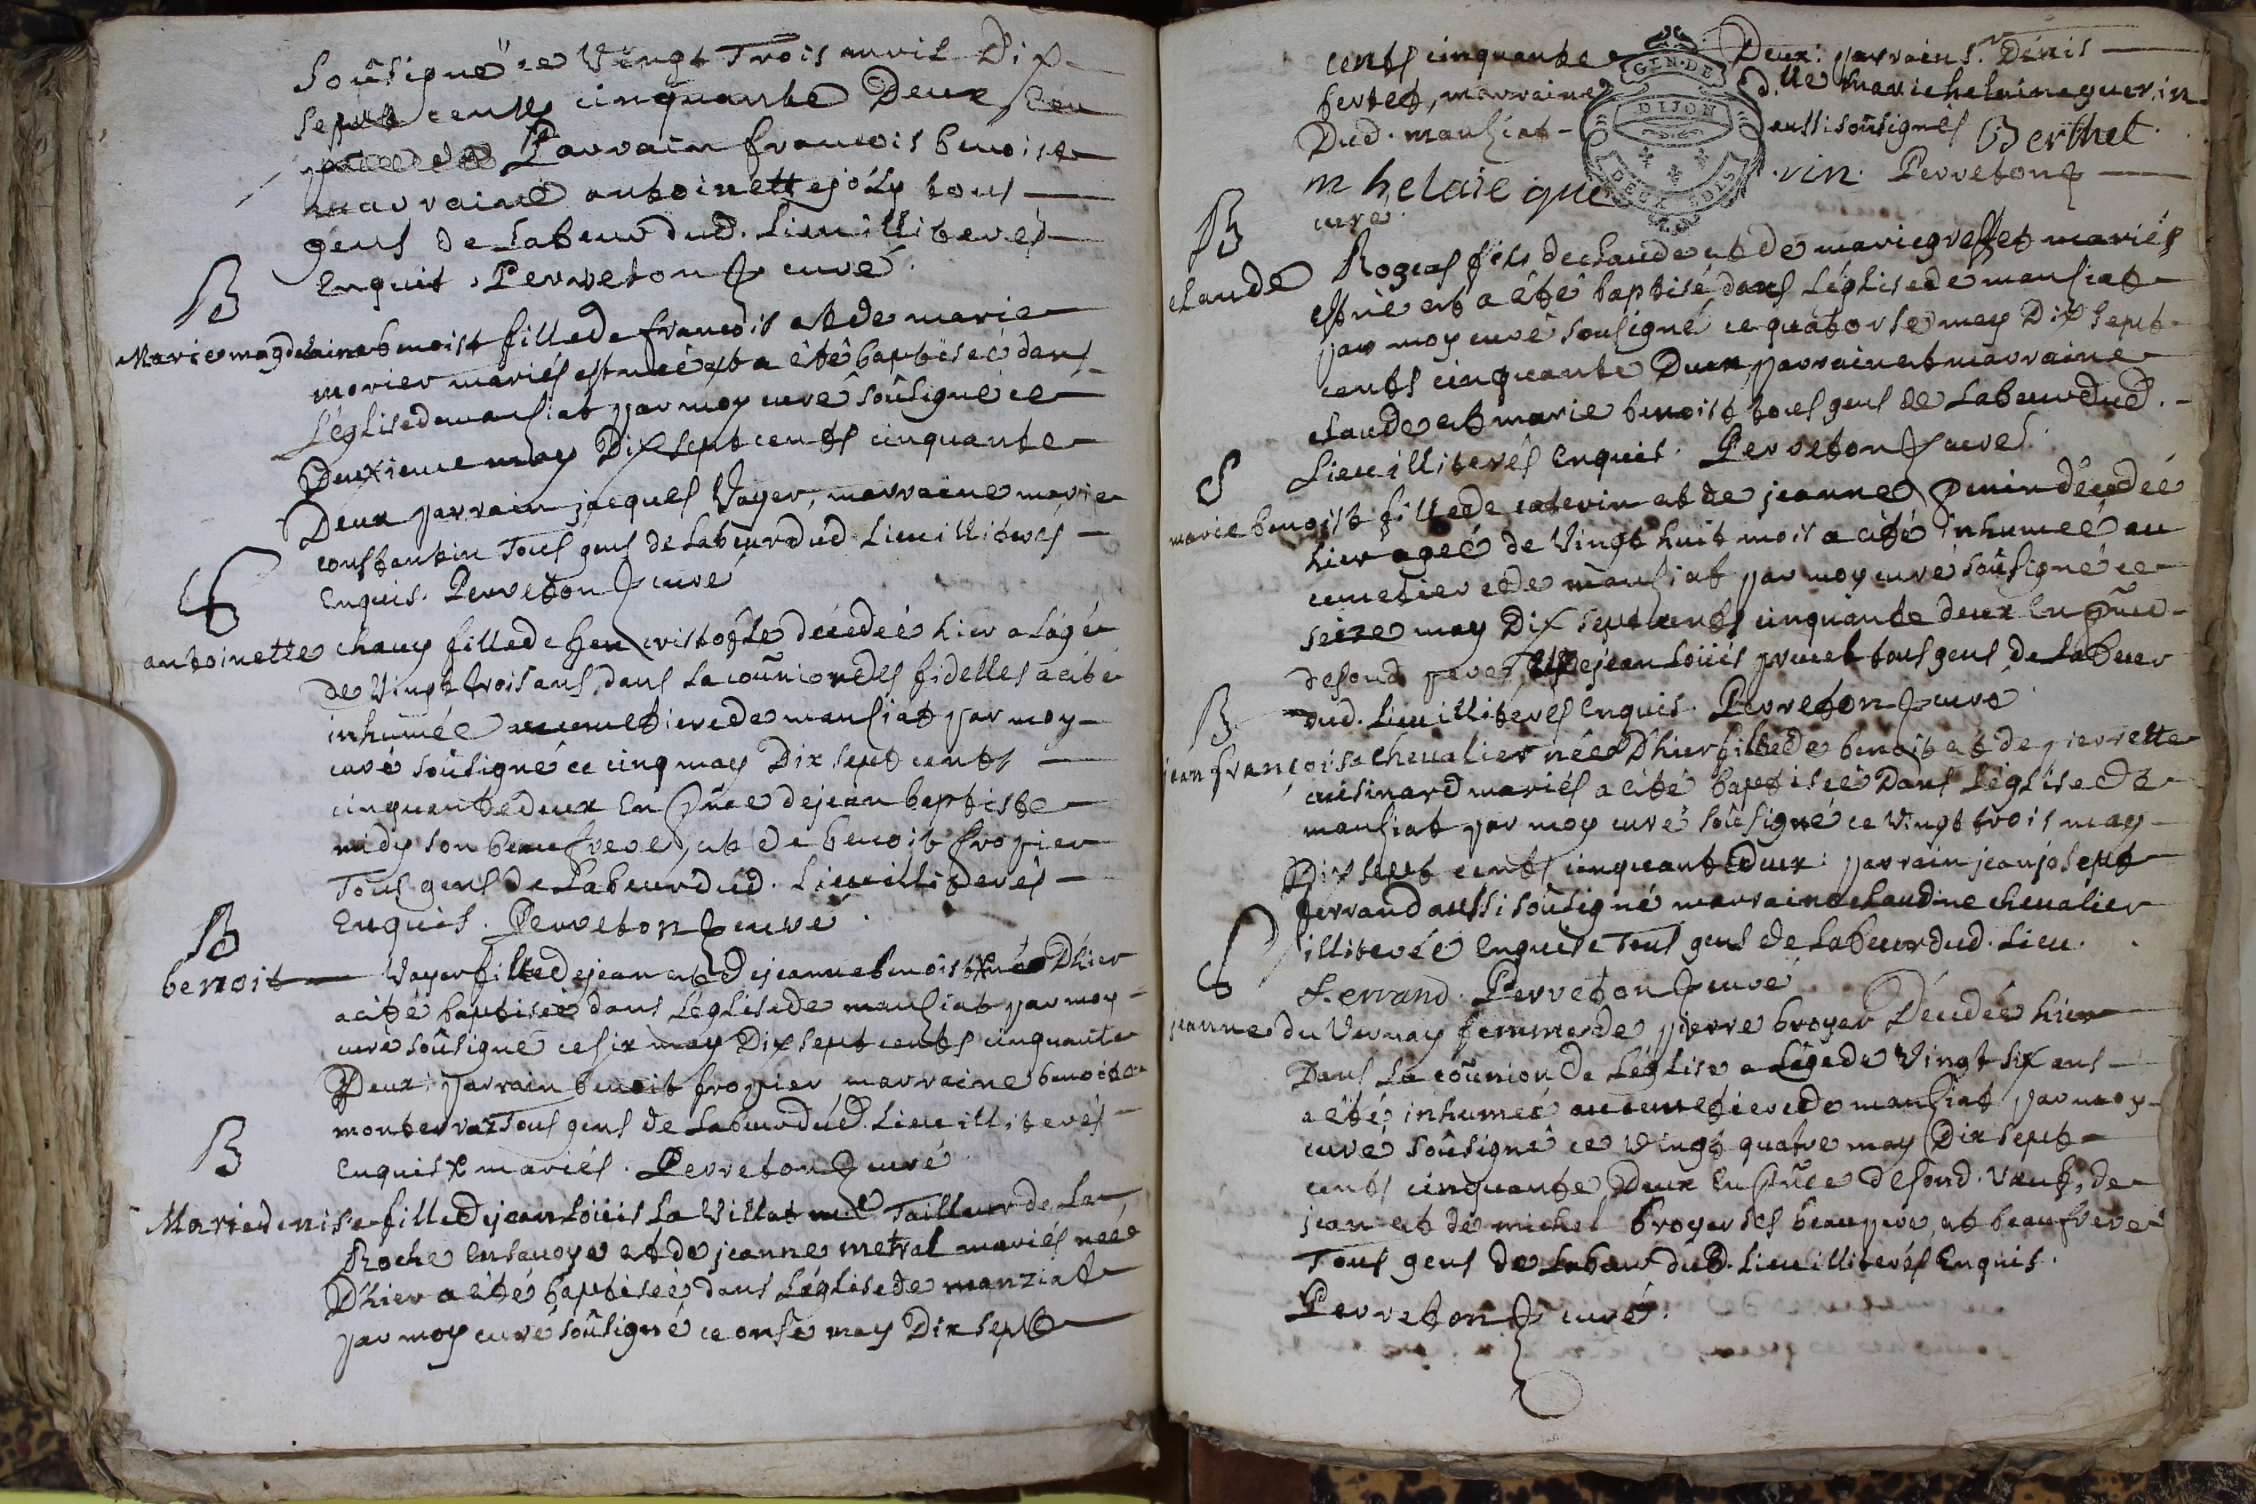 soûsigné ce Vingt Trois avril Dix
sept cents cinquante Deux
Parrain francois benoist
marraine antoinette joly tous
gens de Labeur dud. Lieu illiterés
Enquit. Perreton curé.
B
Marie magdelaine benoist fille de francois et de marie
morier mariés est neé et a êtê baptiseé dans
L'église de mansiat par moy curê soûsigné ce
Deuxieme may Dix sept cents cinquante
Deux parrain jacques Vayer, marraine marie
constantin Tous gens de Labeur dud Lieu illiterés
Enquis. Perreton curé
S
antoinette chauy fille de feu cristofle décedeé hier a Lâge
de Vingt trois ans, dans La coûnion des fidelles a eté
inhumée au cimetiere de mansiat par moy
curé soûsigné ce cinq may Dix sept cents
cinquante deux En pñce de jean baptiste
midy son beaufrere, et de benoit frogier
Tous gens de Labeur dud. Lieu illiterés
Enquis. Perreton curé.
B
benoit Vayer fille de jean et de jeanne benoist née Dhier
a eté baptiseé dans Léglise de mansiat par moy
curé soûsigné ce six may Dix sept cents cinquante
Deux: parrain benoit frogier marraine benoite
monterraz Tous gens de Labeur dud. Lieu illiterés
Enquis x mariés. Perreton curé
B
Marie denise fille de jean Loüis La Villat Tailleur de La
Roche En savoye et de jeanne metral mariés neé
Dhier a eté baptiseé dans Léglise de manziat
par moy curé soûsigné ce onse may Dix sept
cents cinquante Deux: parrain s.r Denis
bertet, marraine d.lle marie helaine guerin
Dud. mansiat aussi soûsignés Berthet
m helaie gue rin. Perreton
curé.
GEN. DE
DIJON
DEUX SOLS
B
claude Rogeas fils de claude et de marie greffet mariés
est né et a êtê baptisé dans Léglise de mansiat
par moy curé sousigné ce quatorse may Dix sept
cents cinquante Deux, parrain et marraine
claude et marie benoist tous gens de Labeur dud.
Lieu illiterés Enquis. Perreton curé.
S
marie benoist fille de caterin et de jeanne décedeé
hier ageé de Vingt huit mois a eté inhumeé au
cimetiere de mansiat par moy curé soûsigné ce
seize may Dix sept cents cinquante deux En pñce
de sond pere, et de jean Loüis tous gens de Labeur
dud. Lieu illiterés Enquis. Perreton curé
B
jean françoise chevalier née Dhier fille de benoit et de pierrette
cuisinard mariés a eté baptiseé Dans Léglise de
mansiat par moy curé soûsigné ce Vingt trois may
Dix sept cents cinquante deux: parrain jean joseph
ferrand aussi soûsigné marraine claudine chevalier
illiterée Enquise Tous gens de Labeur dud. Lieu.
Ferrand. Perreton curé
S
jeanne du Vernay femme de pierre broyer Décedée hier
Dans La coûnion de Léglise a Lâge de Vingt six ans
a êté inhumeé au cimetiere de mansiat par moy
curé soûsigné ce Vingt quatre may Dix sept
cents cinquante Deux En pñce de sond. veuf, de
jean et de michel broyer ses beaupere et beaufrere
Tous gens de Labeur dud. Lieu illiterés Enquis.
Perreton curé.